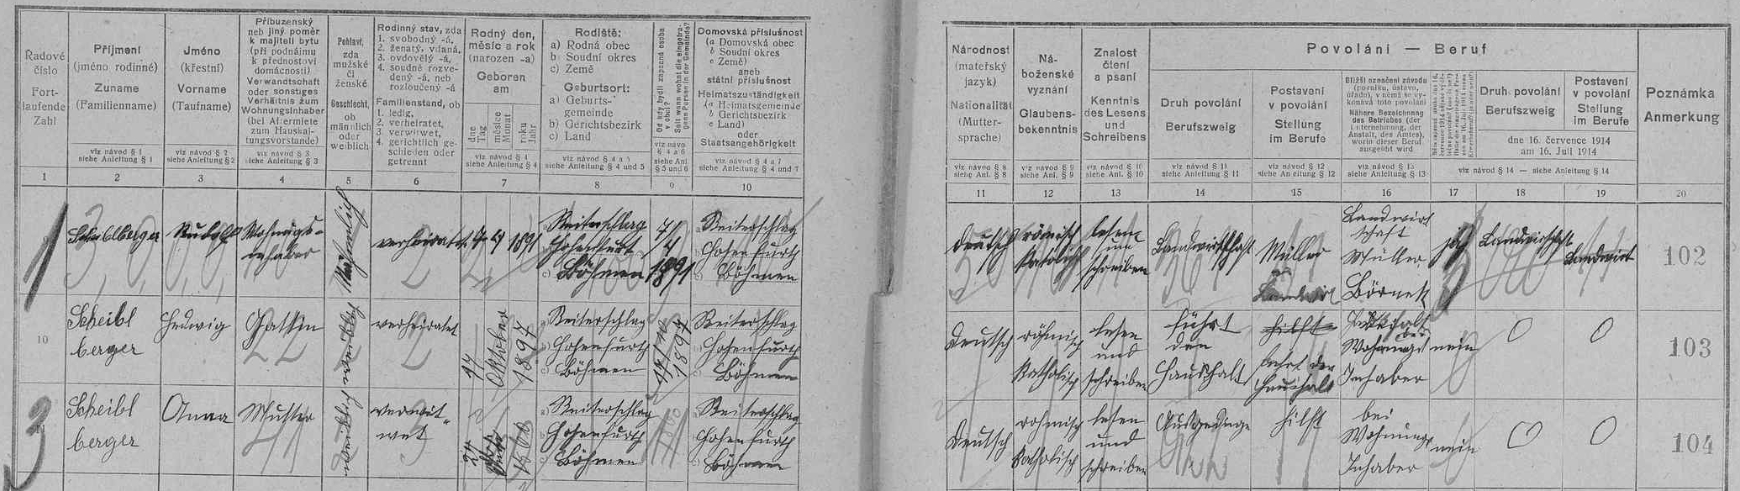 Řadové
číslo
Fort-
laufende
Zahl
Příjmení
(jméno rodinné)
Zuname
(Familienname)
viz návod § 1
siehe Anleitung § 1
Jméno
(křestní)
Vorname
(Taufname)
viz návod § 2
siehe Anleitung § 2
Příbuzenský
neb jiný poměr
k majiteli bytu
(při podnájmu
k přednostovi
domácnosti)
Verwandtschaft
oder sonstiges
Verhältnis zum
Wohnungsinhaber
(bei Aftermiete
zum Haushal-
tungsvorstande)
viz návod § 3
siehe Anleitung § 3
Pohlaví,
zda
mužské
či
ženské
Geschlecht,
ob
männlich
oder
weiblich
Rodinný stav, zda
1. svobodný -á,
2. ženatý, vdaná,
3. ovdovělý -á,
4. soudně rozve-
dený -á, neb
rozloučený -á
Familienstand, ob
1. ledig,
2. verheiratet,
3. verwitwet,
4. gerichtlich ge-
schieden oder
getrennt
Rodný den,
měsíc a rok
(narozen -a)
Geboren
am
dne
Tag
měsíce
Monat
roku
Jahr
viz návod § 4
siehe Anleitung § 4
Rodiště:
a) Rodná obec
b) Soudní okres
c) Země
Geburtsort:
a) Geburts-
gemeinde
b) Gerichtsbezirk
c) Land
viz návod § 4 a 5
siehe Anleitung § 4 und 5
Od kdy bydlí zapsaná osoba
v obci?
viz návod
§ 4 a 6
siehe Anl.
§ 5 und 6
Domovská příslušnost
(a Domovská obec
b Soudní okres
c Země)
aneb
státní příslušnost
Heimatszuständigkeit
(a Heimatsgemeinde
b Gerichtsbezirk
c Land)
oder
Staatsangehörigkeit
viz návod § 4 a 7
siehe Anleitung § 4 und 7
1 2 3 4 5 6 7 8 9 10
Národnost
(mateřský
jazyk)
Nationalität
(Mutter-
sprache)
viz návod § 8
siehe Anl. § 8
Ná-
boženské
vyznání
Glaubens-
bekenntnis
viz návod § 9
siehe Anl. § 9
Znalost
čtení
a psaní
Kenntnis
des Lesens
und
Schreibens
viz návod § 10
siehe Anl. § 10
Povolání — Beruf
Druh povolání
Berufszweig
viz návod § 11
siehe Anleitung § 11
Postavení
v povolání
Stellung
im Berufe
viz návod § 12
siehe Anleitung § 12
Bližší označení závodu
(podniku, ústavu,
úřadu), v němž se vy-
konává toto povolání
Nähere Bezeichnung
des Betriebes (der
Unternehmung, der
Anstalt, des Amtes),
worin dieser Beruf
ausgeübt wird
viz návod § 13
siehe Anleitung § 13
Druh povolání
Berufszweig
Postavení
v povolání
Stellung
im Berufe
dne 16. července 1914
am 16. Juli 1914
viz návod § 14 — siehe Anleitung § 14
Poznámka
Anmerkung
11 12 13 14 15 16 17 18 19 20
1
Rudolf
Wohnungs-
inhaber
männlich
verheiratet
1891
Reiterschlag
Hohenfurt
Böhmen
1891
Reiterschlag
Hohenfurth
Böhmen
deutsch
römisch
katholisch
lesen
und
schreiben
Landwirtschaft
Müller
Landwirt
Landwirt
schaft
Müller
ja
Landwirtschaft
Landwirt
102
Scheibl
berger
Hedwig
Gattin
weiblich
verheiratet
17
Oktober
1897
Reiterschlag
Hohenfurth
Böhmen
1897
Reiterschlag
Hohenfurth
Böhmen
deutsch
römisch
katholisch
lesen
und
schreiben
führt
den
Haushalt
hilft
Inhaber
nein
0
0
103
3
Scheibl
berger
Anna
Mutter
weiblich
verwit-
wet
Reiterschlag
Hohenfurth
Böhmen
Reiterschlag
Hohenfurth
Böhmen
deutsch
römisch
katholisch
lesen
und
schreiben
Ausgedinge
hilft
bei
Wohnungs
Inhaber
nein
0
0
104